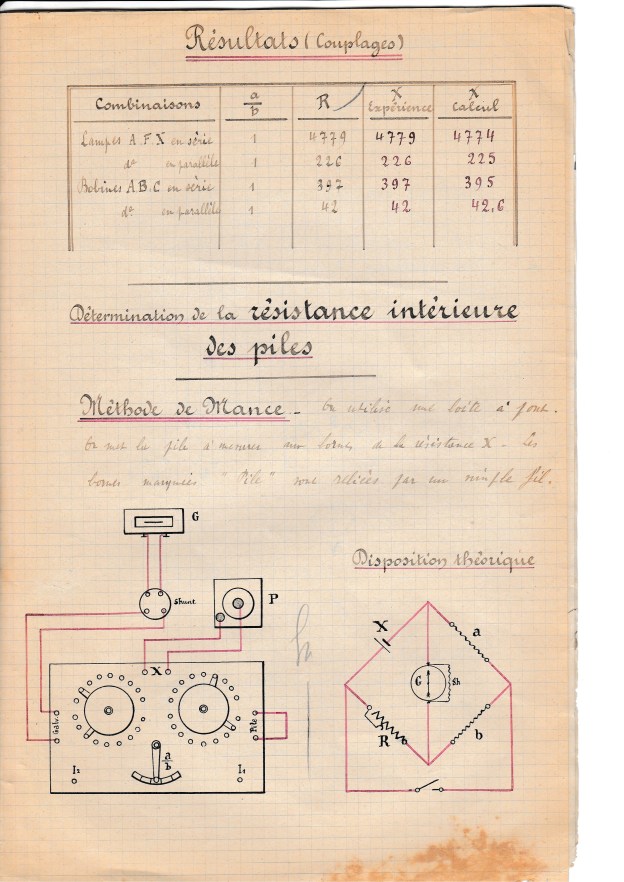 Résultats (Couplages)
Combinaisons a/b R X Expérience X Calcul
Lampes A.F.X en série 1 4779 4779 4774
do en parallèle 1 226 226 225
Bobines A.B.C en série 1 397 397 395
do en parallèle 1 42 42 42,6
Détermination de la résistance intérieure
des piles
Méthode de Mance - On utilise une boîte à pont.
On met la pile à mesurer aux bornes de la résistance X - Les
bornes marquées "Pile" sont reliées par un simple fil.
G
Shunt
P
Disposition théorique
X
Galv.
Pile
a/b
I2
I1
X
a
G
Sh
R
b